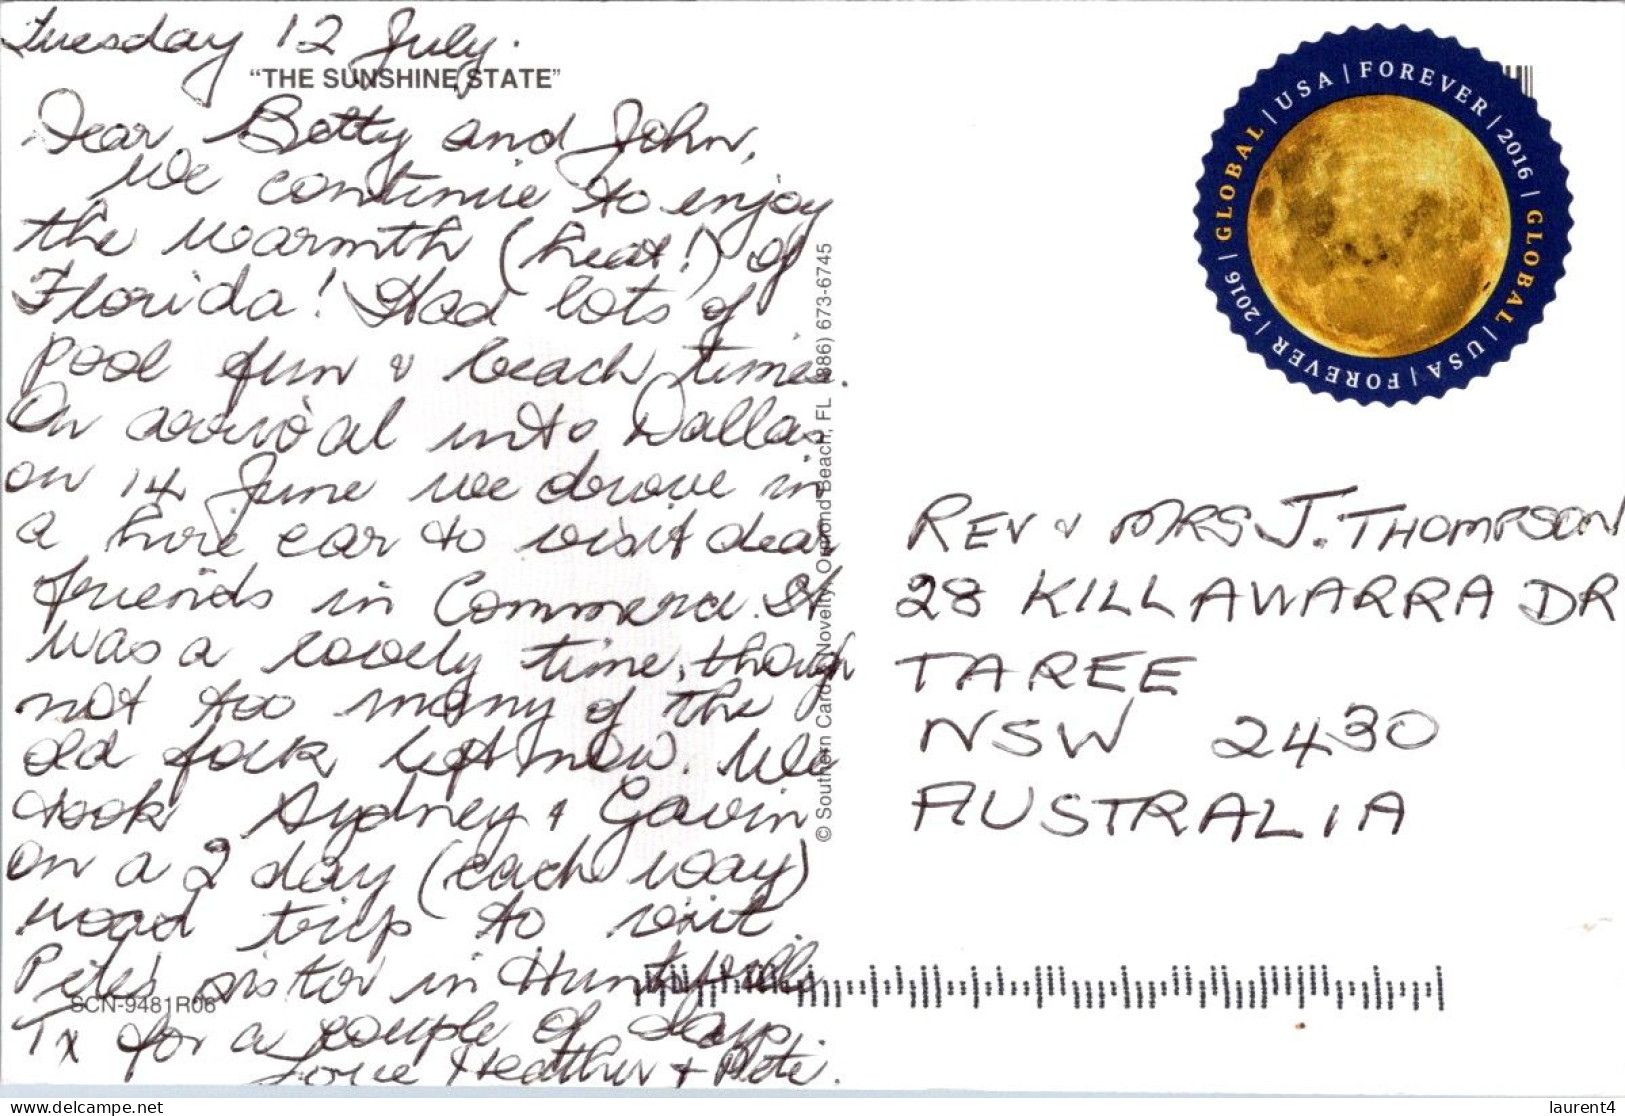 Tuesday 12 July.
"THE SUNSHINE STATE"
Dear Betty and John,
We continue to enjoy
the warmth (heat!) of
Florida! Had lots of
pool fun & beach times.
On arrival into Dallas
on 14 June we drove in
a hire car to visit dear
friends in Commerce. It
was a lovely time, though
not too many of the
old folk left now. We
took Sydney & Gavin
on a 2 day (each way)
road trip to visit
Pete's sister in Huntsville
Tx for a couple of days.
Love Heather + Pete.
SCN-9481R06
© Southern Card & Novelty, Ormond Beach, FL (386) 673-6745
GLOBAL | USA | FOREVER | 2016 | GLOBAL | USA | FOREVER | 2016 |
REV & MRS J. THOMPSON
28 KILLAWARRA DR
TAREE
NSW 2430
AUSTRALIA
laurent4
www.delcampe.net